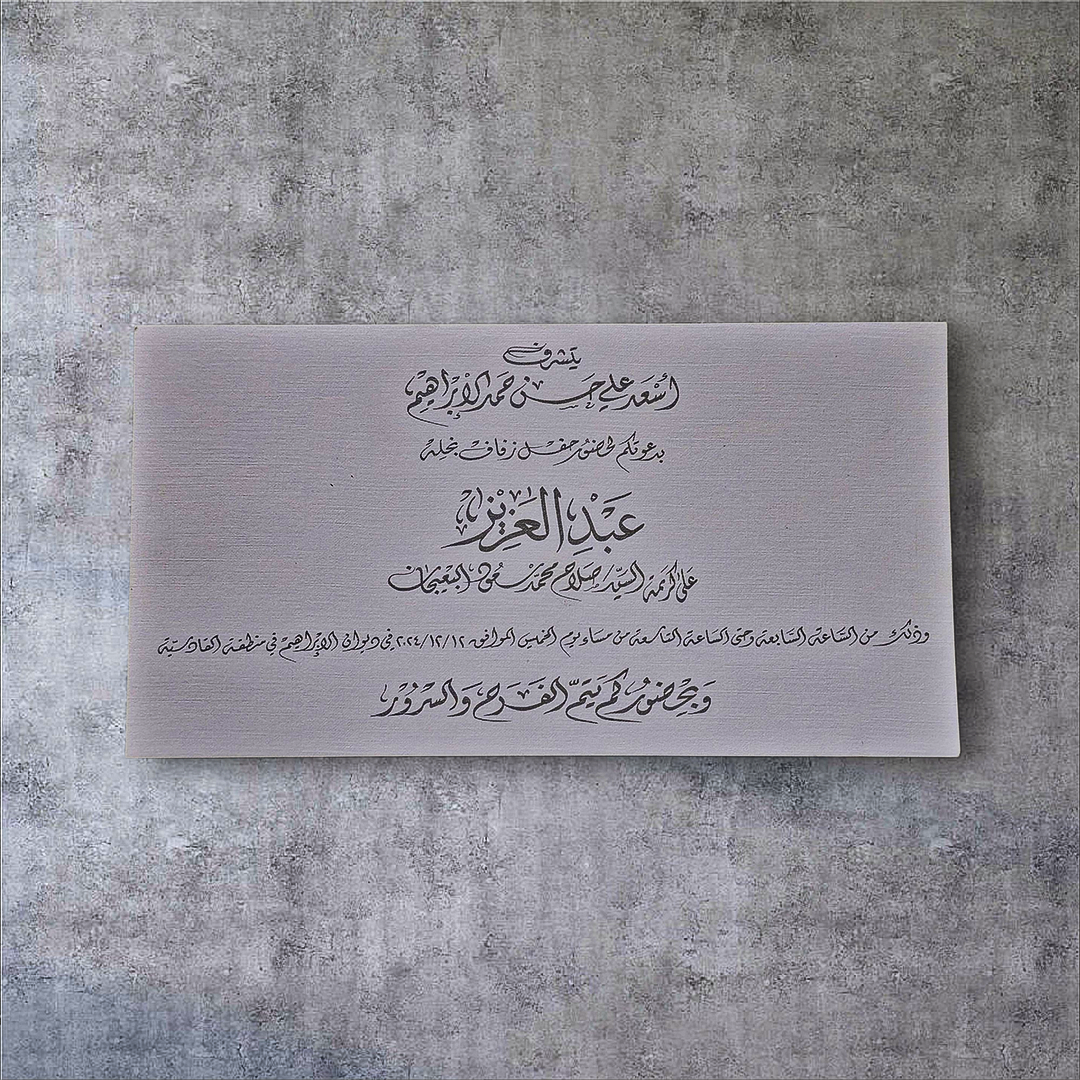 يتشرف
أسعد علي حسن حمد الإبراهيم
بدعوتكم لحضور حفل زفاف نجله
عبد العزيز
على كريمة السيد / صلاح محمد البعيجان
وذلك من الساعة السابعة وحتى الساعة التاسعة من مساء يوم الخميس الموافق ٢٠٢٤/١٢/١٢ في ديوان الإبراهيم في منطقة القادسية
وبحضوركم يتم الفرح والسرور